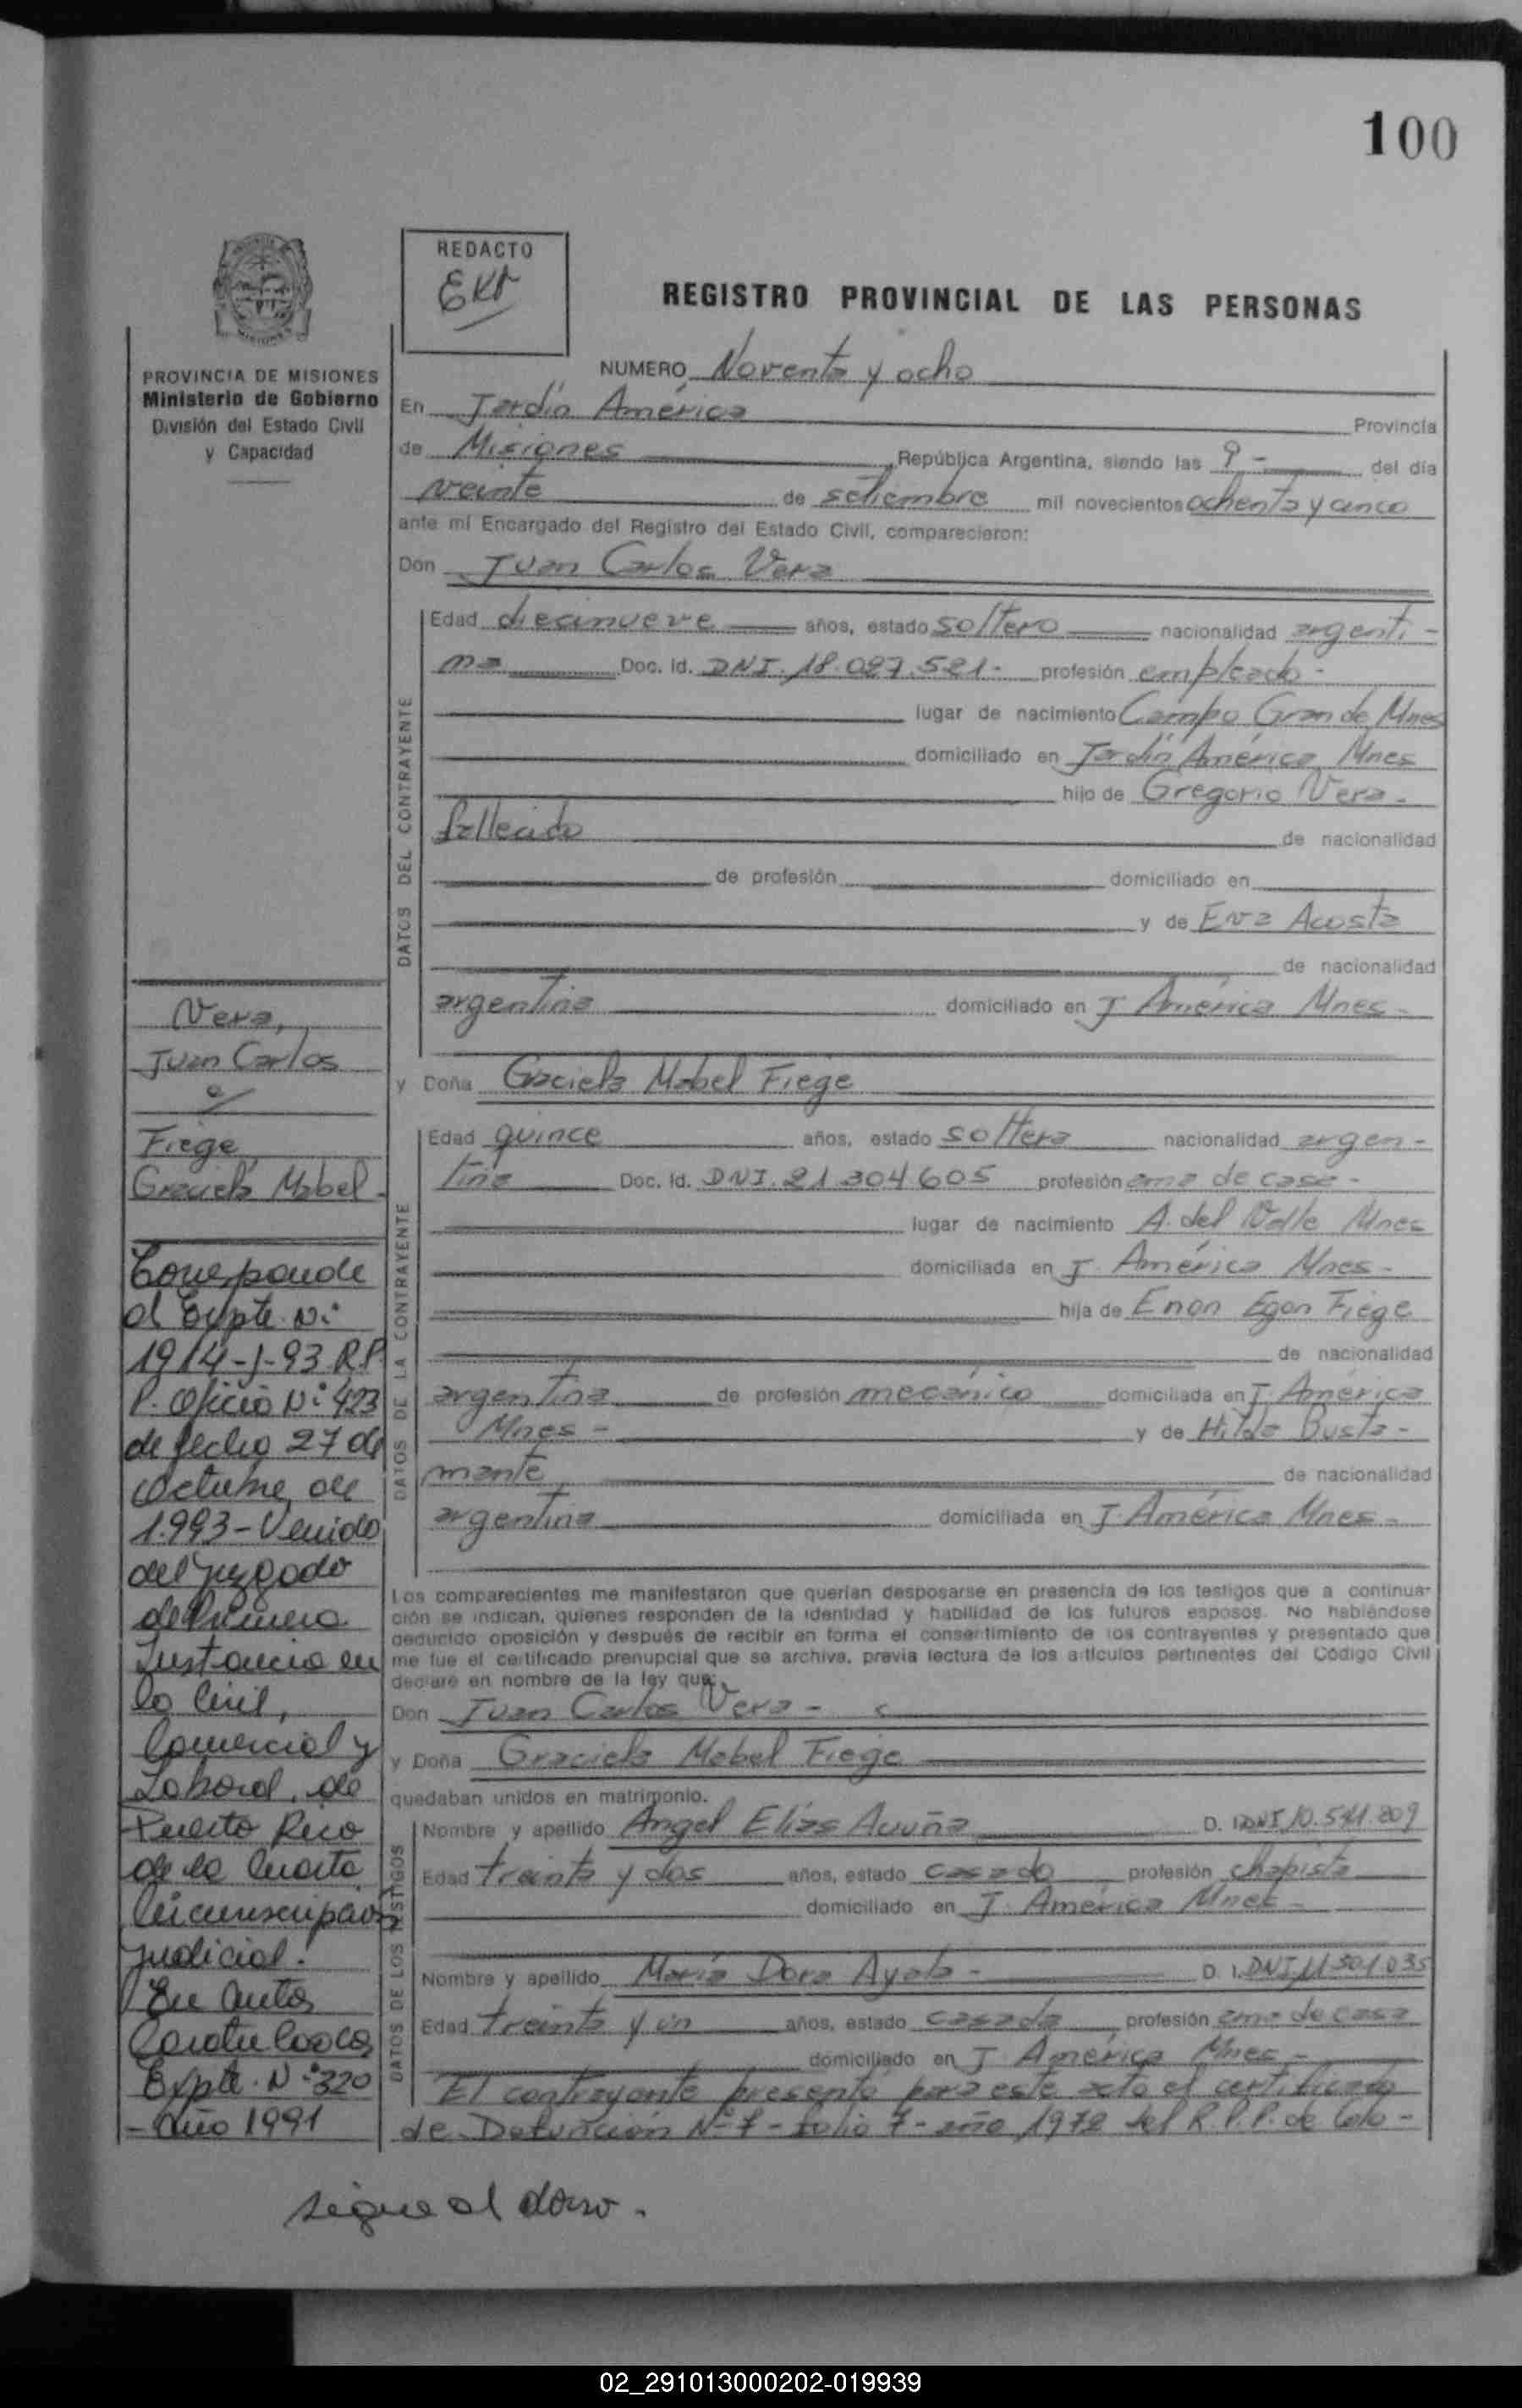 100
REDACTO
REGISTRO PROVINCIAL DE LAS PERSONAS
PROVINCIA DE MISIONES
Ministerio de Gobierno
División del Estado Civil
y Capacidad
NUMERO Noventa y ocho
En Jardín América Provincia
de Misiones República Argentina, siendo las 9 - del día
veinte de setiembre mil novecientos ochenta y cinco
ante mí Encargado del Registro del Estado Civil, comparecieron:
Don Juan Carlos Vera
DATOS DEL CONTRAYENTE
Edad diecinueve años, estado soltero nacionalidad argenti-
na Doc. Id. DNI. 18.027.521- profesión empleado-
lugar de nacimiento Campo Grande, Mnes
domiciliado en Jardín América Mnes
hijo de Gregorio Vera-
fallecido de nacionalidad
de profesión domiciliado en
y de Eva Acosta
de nacionalidad
argentina domiciliado en J América Mnes-
y Doña Graciela Mabel Fiege
DATOS DE LA CONTRAYENTE
Edad quince años, estado soltera nacionalidad argen-
tina Doc. Id. DNI. 21.304.605 profesión ama de casa-
lugar de nacimiento A. del Valle Mnes
domiciliada en J. América Mnes-
hija de Enon Egon Fiege
de nacionalidad
argentina de profesión mecánico domiciliada en J. América
Mnes- y de Hilda Busta-
mante de nacionalidad
argentina domiciliada en J. América Mnes-
Los comparecientes me manifestaron que querían desposarse en presencia de los testigos que a continua-
ción se indican, quienes responden de la identidad y habilidad de los futuros esposos. No habiéndose
deducido oposición y después de recibir en forma el consentimiento de los contrayentes y presentado que
me fue el certificado prenupcial que se archiva, previa lectura de los artículos pertinentes del Código Civil
declaré en nombre de la ley que:
Don Juan Carlos Vera-
y Doña Graciela Mabel Fiege
quedaban unidos en matrimonio.
DATOS DE LOS TESTIGOS
Nombre y apellido Angel Elías Acuña D. I. DNI 10.541.809
Edad treinta y dos años, estado casado profesión chapista
domiciliado en J. América Mnes-
Nombre y apellido María Dora Ayala- D. I. DNI 11.501.035
Edad treinta y un años, estado casada profesión ama de casa
domiciliado en J. América Mnes-
El contrayente presentó para este acto el certificado
de Defunción Nº 7- folio 7- año 1972 del R.P.P. de Colo-
Vera,
Juan Carlos
c/
Fiege
Graciela Mabel-
Corresponde
al Expte. Nº
1914-J-93 R.P.
P. Oficio Nº 423
de fecha 27 de
Octubre de
1.993- Venido
del Juzgado
de Primera
Instancia en
lo Civil,
Comercial y
Laboral, de
Puerto Rico
de la Cuarta
Circunscripción
Judicial.
En Autos
Caratulados
Expte. Nº 320
- Año 1991
sigue al dorso.
02_291013000202-019939